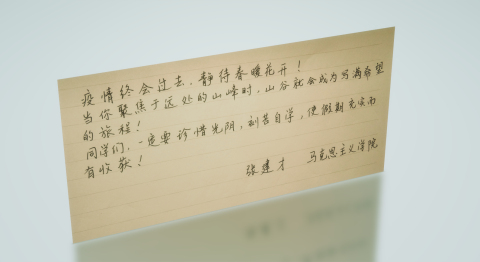 疫情终会过去，静待春暖花开！
当你聚焦于远处的山峰时，山谷就会成为写满希望
的旅程！
同学们，一定要珍惜光阴，刻苦自学，使假期充实而
有收获！
张建才 马克思主义学院